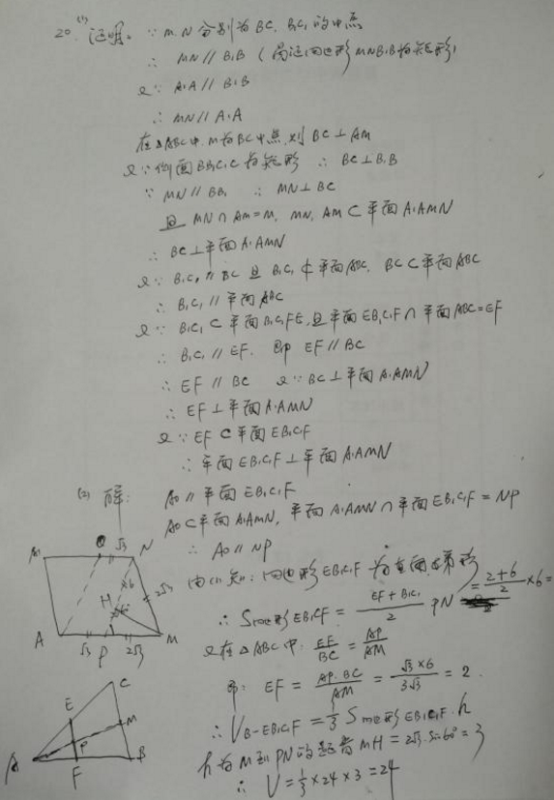 20.(1) 证明。∵ M.N 分别为 BC. B₁C₁ 的中点
∴ MN // B₁B
又∵ A₁A // B₁B
∴ MN // A₁A
在△ABC中, M为BC中点,则 BC⊥AM
又∵侧面BB₁C₁C为矩形 ∴ BC⊥B₁B
∵ MN // BB₁ ∴ MN⊥BC
且 MN∩AM=M, MN, AM⊂平面A₁AMN
∴ BC⊥平面A₁AMN
又∵ B₁C₁ // BC 且 B₁C₁⊄平面ABC, BC⊂平面ABC
∴ B₁C₁ // 平面ABC
又∵ B₁C₁⊂平面B₁C₁FE,且平面EB₁C₁F∩平面ABC=EF
∴ B₁C₁ // EF. 即 EF // BC
∴ EF // BC 又∵ BC⊥平面A₁AMN
∴ EF⊥平面A₁AMN
又∵ EF⊂平面EB₁C₁F
∴ 平面EB₁C₁F⊥平面A₁AMN
(2) 解: AO // 平面EB₁C₁F
AO⊂平面A₁AMN, 平面A₁AMN∩平面EB₁C₁F=NP
∴ AO // NP
由(1)知: 四边形EB₁C₁F为
∴ S四边形EB₁C₁F = (EF+B₁C₁)/2 · PN = (2+6)/2 ×6=
又在△ABC中, EF/BC = AP/AM
即: EF = AP·BC/AM = √3×6/3√3 = 2.
∴ V B-EB₁C₁F = 1/3 S四边形EB₁C₁F · h
h为M到PN的距离 MH=2√3·sin60°=3
∴ V = 1/3 ×24×3=24
A₁ O √3 N
H 6 60° 2√3
A √3 P 2√3 M
C
E M
P
A F B